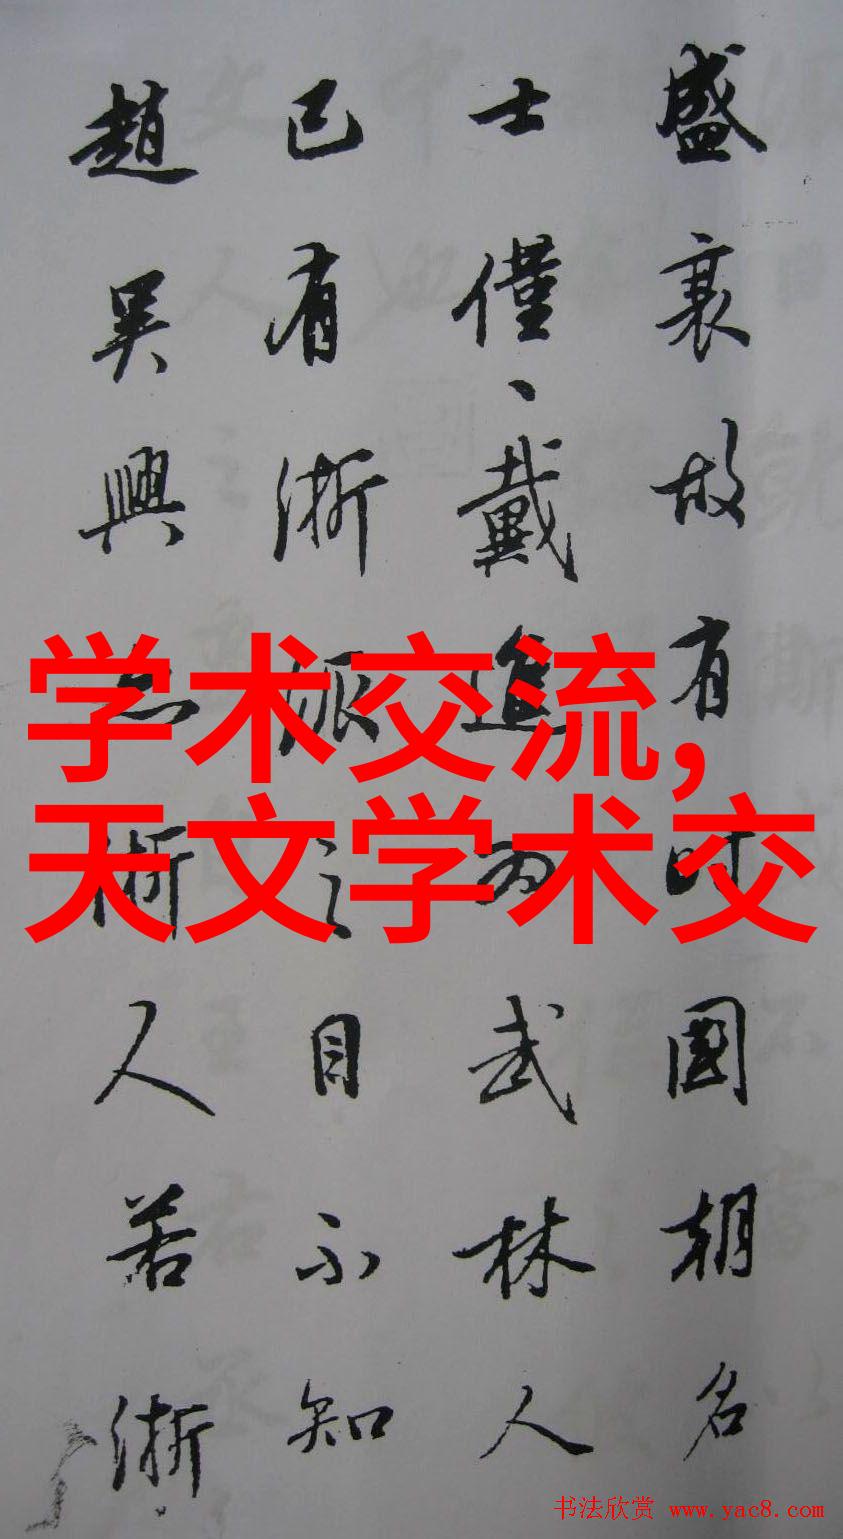 盛衰故有时國朝名
士僅、戴進为武林人
已有浙派之目不知
趙吴興浙人若浙
学术交流,
天文学术交
书法欣赏 www.yac8.com